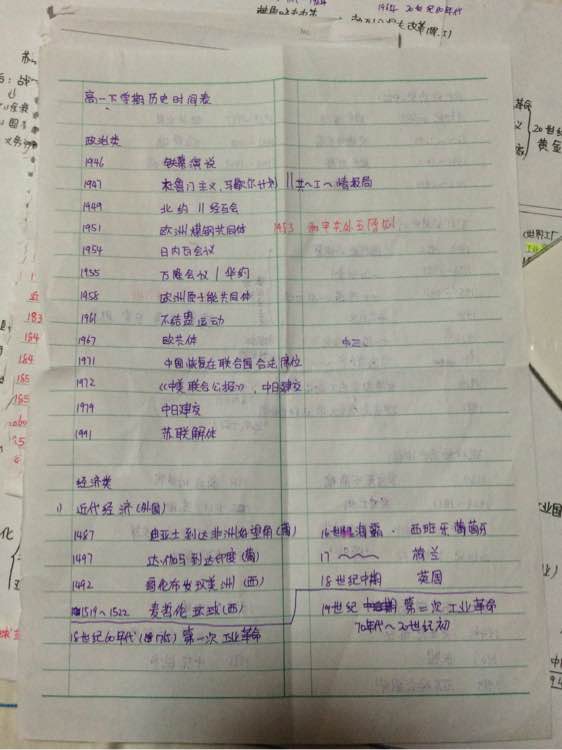 1964 20世纪80年代
高一下学期历史时间表
政治类
1946 铁幕演说
1947 杜鲁门主义,马歇尔计划 || 共~工~情报局
1949 北约 || 经互会
1951 欧洲煤钢共同体 1953 和平共处五原则
1954 日内瓦会议
1955 万隆会议 / 华约
1958 欧洲原子能共同体
1961 不结盟运动
1967 欧共体
1971 中国恢复在联合国合法席位
1972 《中美联合公报》,中日建交
1979 中日建交
1991 苏联解体
经济类
1) 近代经济(外国)
1487 迪亚士到达非洲好望角(葡) 16世纪海霸·西班牙葡萄牙
1497 达·伽马到达印度(葡) 17 ~~~ 荷兰
1492 哥伦布发现美洲(西) 18世纪中期 英国
1519~1522 麦哲伦环球(西) 19世纪 第二次工业革命
70年代~20世纪初
18世纪60年代(1765) 第一次工业革命
革命
20世纪
黄金
183
184
184
185
185